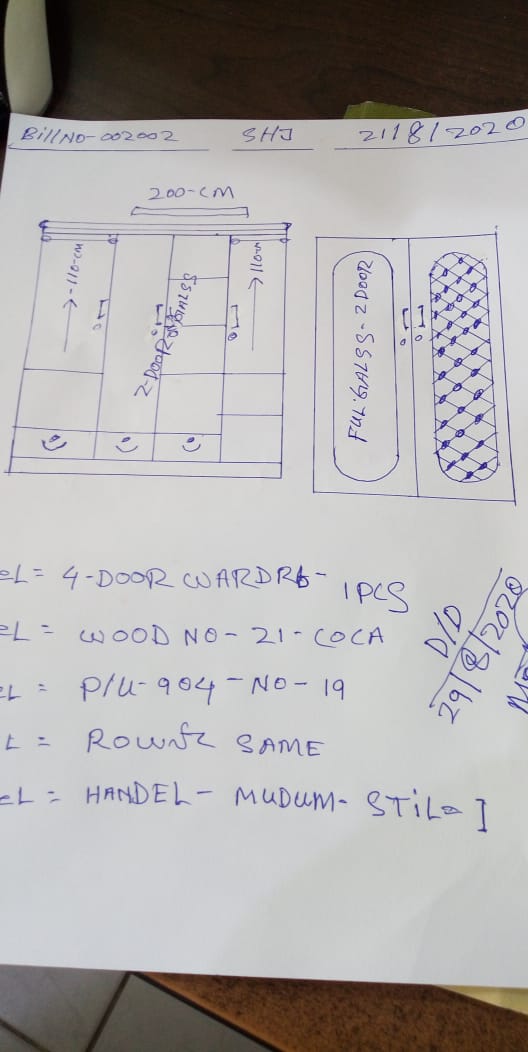 Bill No-002002 SHJ 21/8/2020
200-CM
-110-CM
2-DOOR
GALSS
110-
FUL·GALSS-2 DOOR
eL= 4-DOOR WARDRb- 1 PCS
eL= WOOD NO-21-COCA
eL= P/U-904-NO-19
L= SAME
eL= HANDEL- MUDUM- STiLe I
D/D
29/8/2020